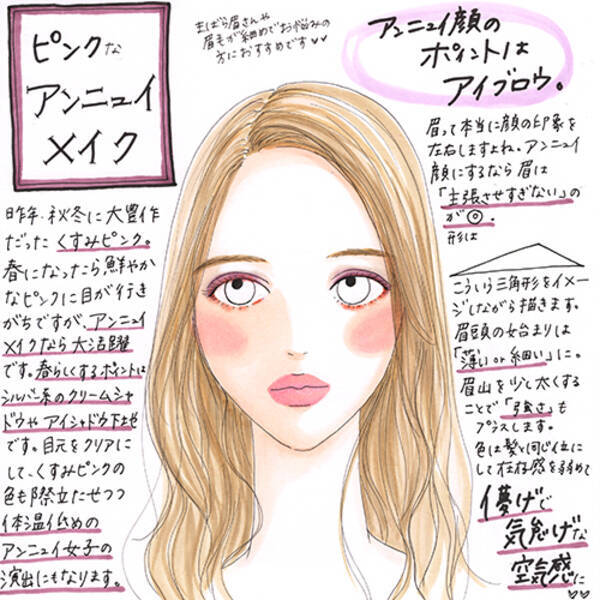 ピンクな
アンニュイ
メイク
まばら眉さんや
眉毛が細めでお悩みの
方におすすめです♡♡
アンニュイ顔の
ポイントは
アイブロウ。
昨年、秋冬に大豊作
だったくすみピンク。
春になったら鮮やか
なピンクに目が行き
がちですが、アンニュイ
メイクなら大活躍
です。春らしくするポイントは
シルバー系のクリームシャ
ドウやアイシャドウ下地
です。目元をクリアに
して、くすみピンクの
色も際立たせつつ
体温低めの
アンニュイ女子の
演出にもなります。
眉って本当に顔の印象を
左右しますよね、アンニュイ
顔にするなら眉は
「主張させすぎない」の
が◎。
形は
こういう三角形をイメー
ジしながら描きます。
眉頭の始まりは
「薄いor細い」に。
眉山を少し太くする
ことで「強さ」も
プラスします。
色は髪と同じ位に
して存在感を弱めて
儚げで
気怠げな
空気感に
♡♡